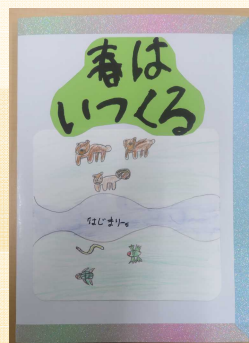 春は
いつくる
はじまりー。